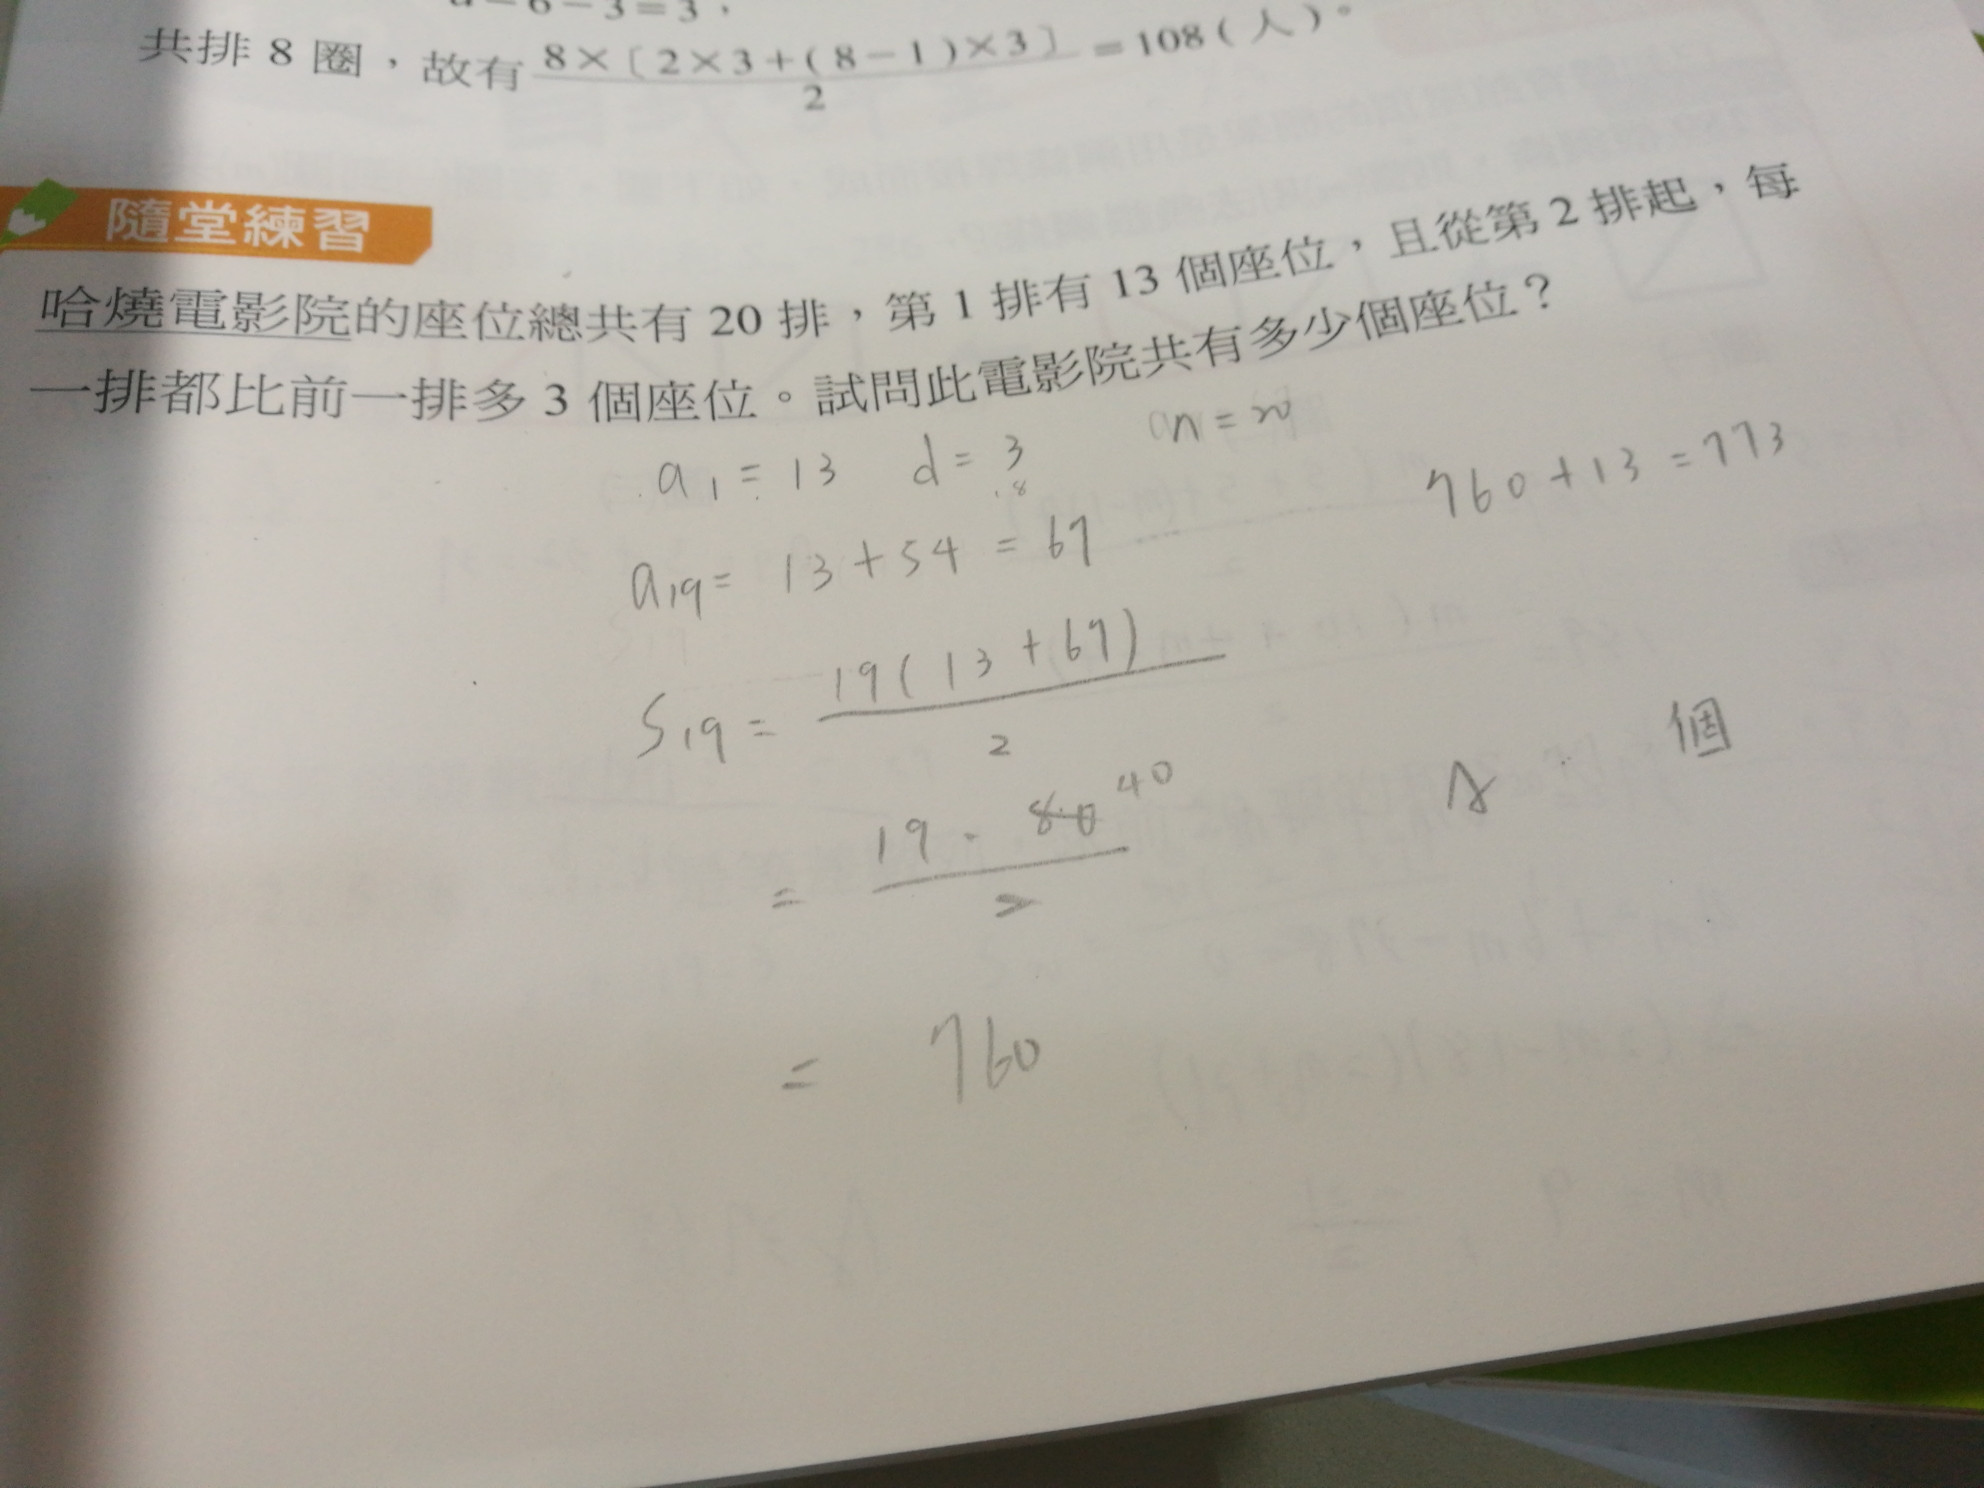 a=6-3=3，
共排 8 圈，故有 8×〔2×3+(8-1)×3〕/2 =108(人)。
隨堂練習
哈燒電影院的座位總共有 20 排，第 1 排有 13 個座位，且從第 2 排起，每
一排都比前一排多 3 個座位。試問此電影院共有多少個座位？
a₁ = 13 d = 3 n = 20
18
a₁₉ = 13 + 54 = 67
760 + 13 = 773
S₁₉ = 19(13 + 67)/2
= 19 · 80/2 40
A 個
= 760